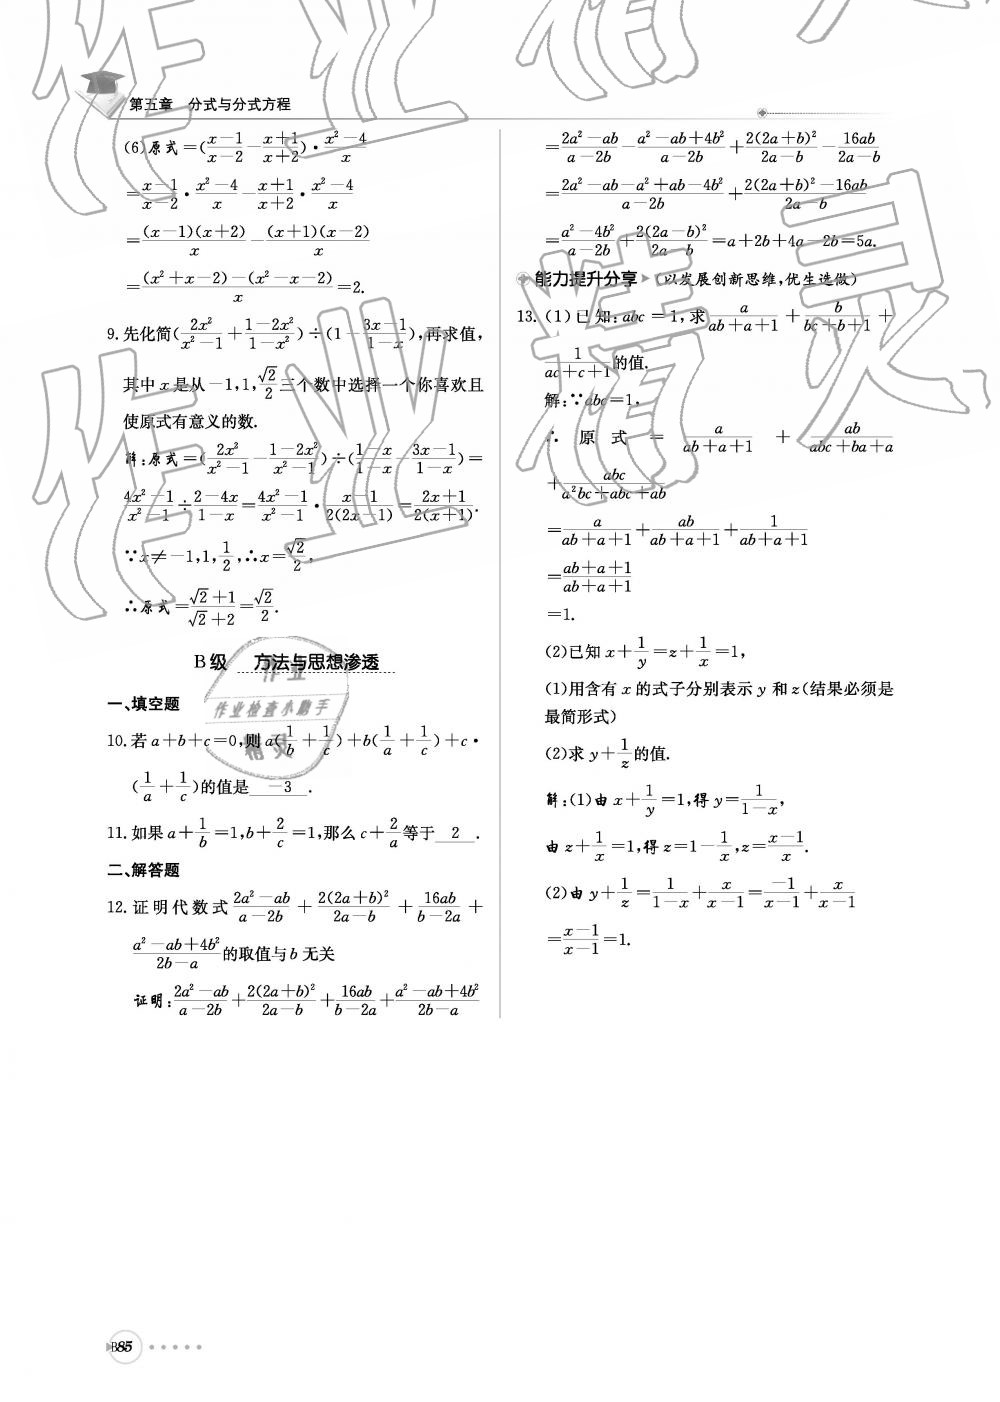 第五章 分式与分式方程
(6)原式=(\frac{x-1}{x-2}-\frac{x+1}{x+2})·\frac{x²-4}{x}
=\frac{x-1}{x-2}·\frac{x²-4}{x}-\frac{x+1}{x+2}·\frac{x²-4}{x}
=\frac{(x-1)(x+2)}{x}-\frac{(x+1)(x-2)}{x}
=\frac{(x²+x-2)-(x²-x-2)}{x}=2.
9.先化简(\frac{2x²}{x²-1}+\frac{1-2x²}{1-x²})÷(1-\frac{3x-1}{1-x}),再求值,
其中x是从-1,1,\frac{√2}{2}三个数中选择一个你喜欢且
使原式有意义的数.
解:原式=(\frac{2x²}{x²-1}-\frac{1-2x²}{x²-1})÷(\frac{1-x}{1-x}-\frac{3x-1}{1-x})=
\frac{4x²-1}{x²-1}÷\frac{2-4x}{1-x}=\frac{4x²-1}{x²-1}·\frac{x-1}{2(2x-1)}=\frac{2x+1}{2(x+1)}.
∵x≠-1,1,\frac{1}{2},∴x=\frac{√2}{2},
∴原式=\frac{√2+1}{√2+2}=\frac{√2}{2}.
B级 方法与思想渗透
一、填空题
10.若a+b+c=0,则a(\frac{1}{b}+\frac{1}{c})+b(\frac{1}{a}+\frac{1}{c})+c·
(\frac{1}{a}+\frac{1}{c})的值是 -3 .
11.如果a+\frac{1}{b}=1,b+\frac{2}{c}=1,那么c+\frac{2}{a}等于 2 .
二、解答题
12.证明代数式\frac{2a²-ab}{a-2b}+\frac{2(2a+b)²}{2a-b}+\frac{16ab}{b-2a}+
\frac{a²-ab+4b²}{2b-a}的取值与b无关
证明:\frac{2a²-ab}{a-2b}+\frac{2(2a+b)²}{2a-b}+\frac{16ab}{b-2a}+\frac{a²-ab+4b²}{2b-a}
=\frac{2a²-ab}{a-2b}-\frac{a²-ab+4b²}{a-2b}+\frac{2(2a+b)²}{2a-b}-\frac{16ab}{2a-b}
=\frac{2a²-ab-a²+ab-4b²}{a-2b}+\frac{2(2a+b)²-16ab}{2a-b}
=\frac{a²-4b²}{a-2b}+\frac{2(2a-b)²}{2a-b}=a+2b+4a-2b=5a.
能力提升分享 (以发展创新思维,优生选做)
13.(1)已知:abc=1,求\frac{a}{ab+a+1}+\frac{b}{bc+b+1}+
\frac{1}{ac+c+1}的值.
解:∵abc=1,
∴原式=\frac{a}{ab+a+1}+\frac{ab}{abc+ba+a}
+\frac{abc}{a²bc+abc+ab}
=\frac{a}{ab+a+1}+\frac{ab}{ab+a+1}+\frac{1}{ab+a+1}
=\frac{ab+a+1}{ab+a+1}
=1.
(2)已知x+\frac{1}{y}=z+\frac{1}{x}=1,
(1)用含有x的式子分别表示y和z(结果必须是
最简形式)
(2)求y+\frac{1}{z}的值.
解:(1)由x+\frac{1}{y}=1,得y=\frac{1}{1-x},
由z+\frac{1}{x}=1,得z=1-\frac{1}{x},z=\frac{x-1}{x}.
(2)由y+\frac{1}{z}=\frac{1}{1-x}+\frac{x}{x-1}=\frac{-1}{x-1}+\frac{x}{x-1}
=\frac{x-1}{x-1}=1.
B85
作业精灵
作业
作业检查小助手
精灵